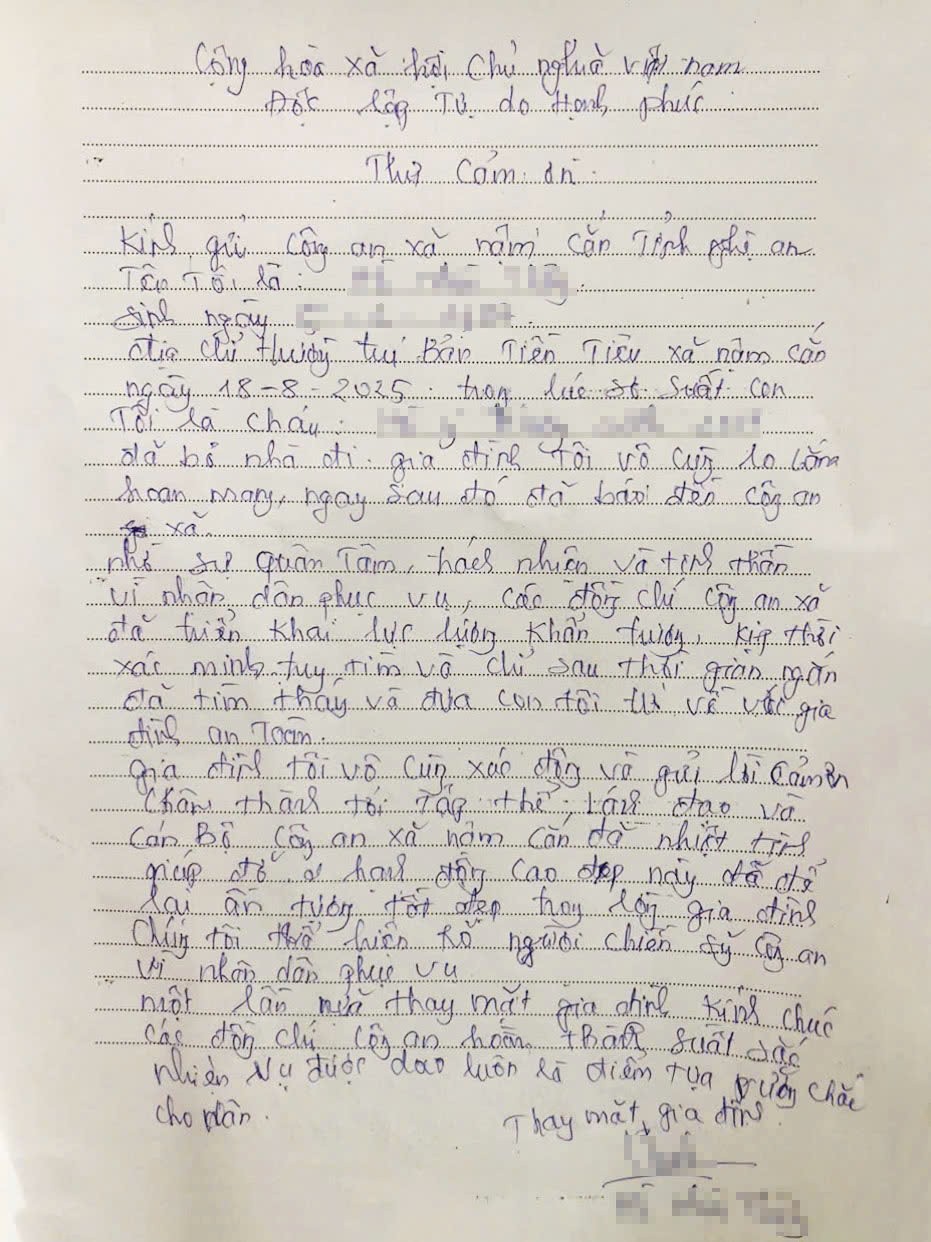 Cộng hòa xã hội Chủ nghĩa việt nam
Độc lập Tự do Hạnh phúc
Thư Cảm ơn
Kính gửi Công an xã nậm Cắn Tỉnh nghệ an
Tên Tôi là:
Sinh ngày
địa chỉ thường trú Bản Tiền Tiêu xã nậm cắn
ngày 18-8-2025. trong lúc sơ suất con
Tôi là cháu:
đã bỏ nhà đi. gia đình tôi vô cùng lo lắng
hoan mang, ngay sau đó đã báo đến công an
xã.
nhờ sự quan Tâm, trách nhiện và tinh thần
vì nhân dân phục vụ, các đồng chí công an xã
đã triển khai lực lượng khẩn trương, kịp thời
xác minh truy tìm và chỉ sau thời gian ngắn
đã tìm thấy và đưa con tôi trở về với gia
đình an Toàn.
gia đình tôi vô cùng xúc động và gửi lời cảm ơn
Chân thành tới Tập thể, Lãnh đạo và
Cán Bộ Công an xã nậm cắn đã nhiệt tình
giúp đỡ hành động cao đẹp này đã để
lại ấn tượng tốt đẹp trong lòng gia đình
Chúng tôi thể hiện rõ người chiến sỹ công an
vì nhân dân phục vụ
một lần nữa thay mặt gia đình kính chúc
các đồng chí công an hoàn thành suất sắc
nhiện vụ được dao luôn là điểm tựa vững chắc
cho dân.
Thay mặt gia đình